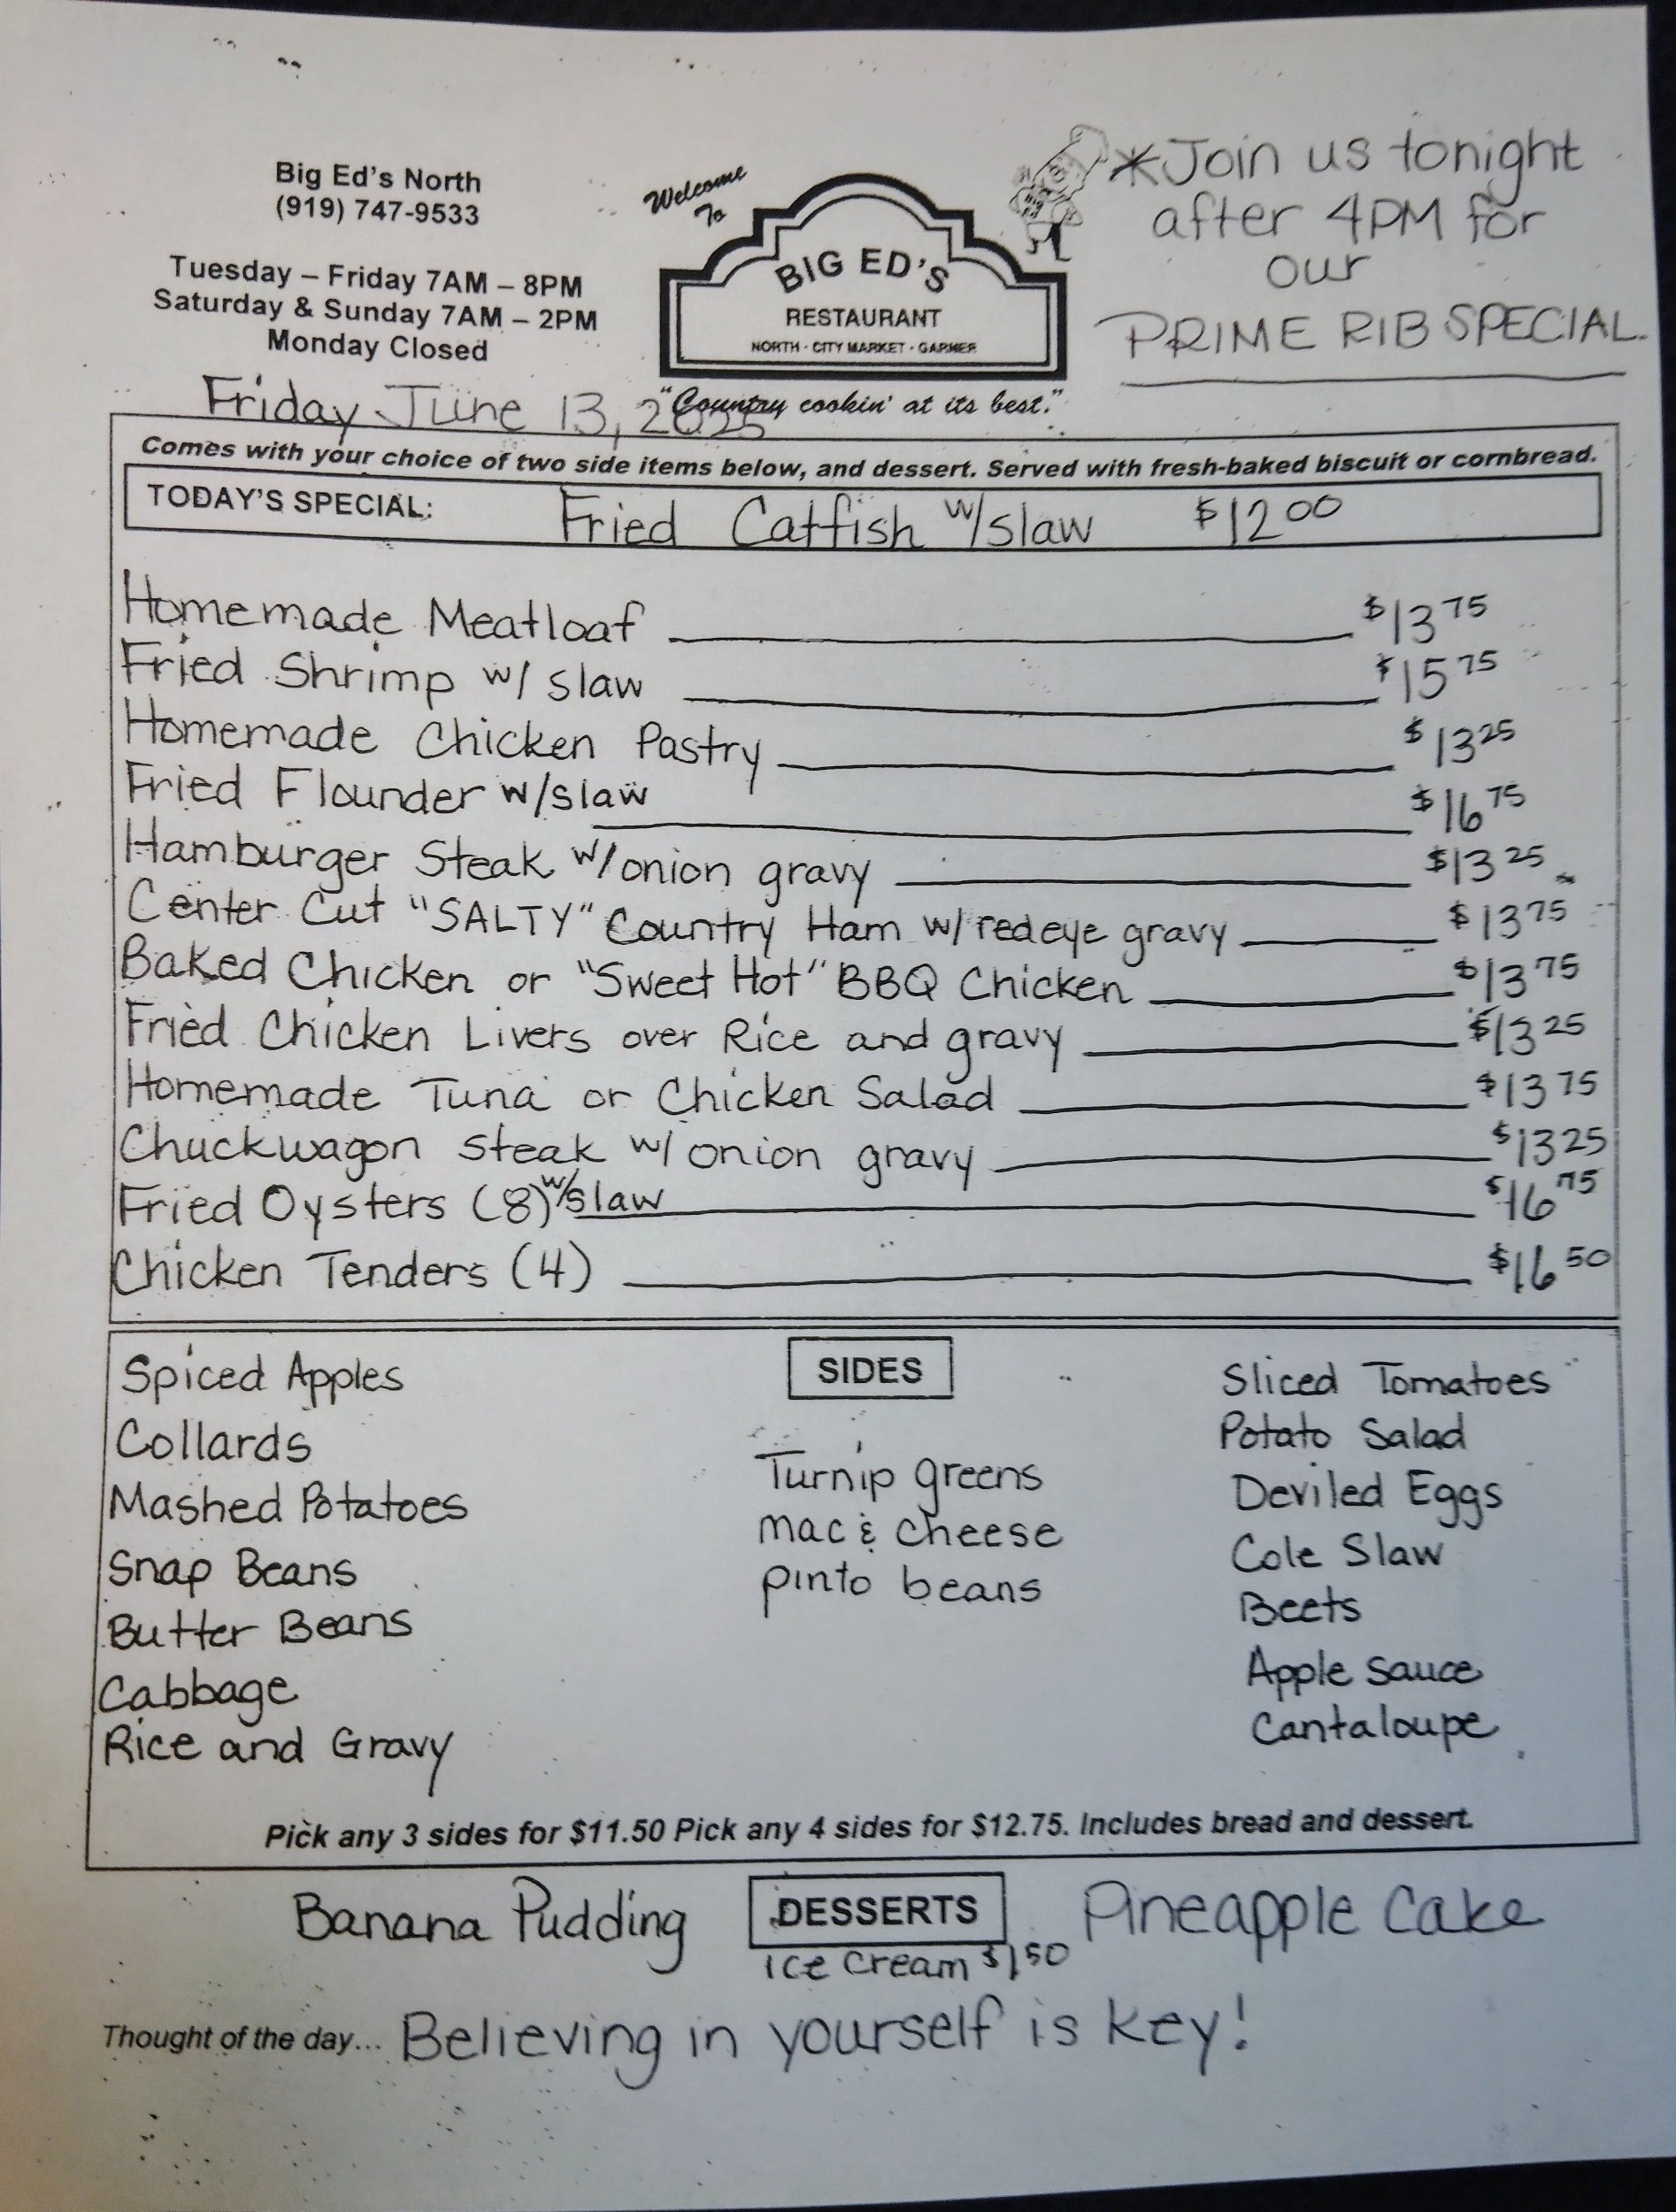 Big Ed's North
(919) 747-9533
Tuesday – Friday 7AM – 8PM
Saturday & Sunday 7AM – 2PM
Monday Closed
Welcome
To
BIG ED'S
RESTAURANT
NORTH · CITY MARKET · GARNER
"Country cookin' at its best."
*Join us tonight
after 4PM for
our
PRIME RIB SPECIAL
Friday June 13, 2025
Comes with your choice of two side items below, and dessert. Served with fresh-baked biscuit or cornbread.
TODAY'S SPECIAL: Fried Catfish w/slaw $12 00
Homemade Meatloaf $13 75
Fried Shrimp w/ slaw $15 75
Homemade Chicken Pastry $13 25
Fried Flounder w/slaw $16 75
Hamburger Steak w/onion gravy $13 25
Center Cut "SALTY" Country Ham w/ redeye gravy $13 75
Baked Chicken or "Sweet Hot" BBQ Chicken $13 75
Fried Chicken Livers over Rice and gravy $13 25
Homemade Tuna or Chicken Salad $13 75
Chuckwagon steak w/ onion gravy $13 25
Fried Oysters (8) w/slaw $16 75
Chicken Tenders (4) $16 50
SIDES
Spiced Apples
Collards
Mashed Potatoes
Snap Beans
Butter Beans
Cabbage
Rice and Gravy
Turnip greens
mac & cheese
pinto beans
Sliced Tomatoes
Potato Salad
Deviled Eggs
Cole Slaw
Beets
Apple sauce
Cantaloupe
Pick any 3 sides for $11.50 Pick any 4 sides for $12.75. Includes bread and dessert.
DESSERTS
Banana Pudding
ice cream $1 50
Pineapple Cake
Thought of the day... Believing in yourself is key!